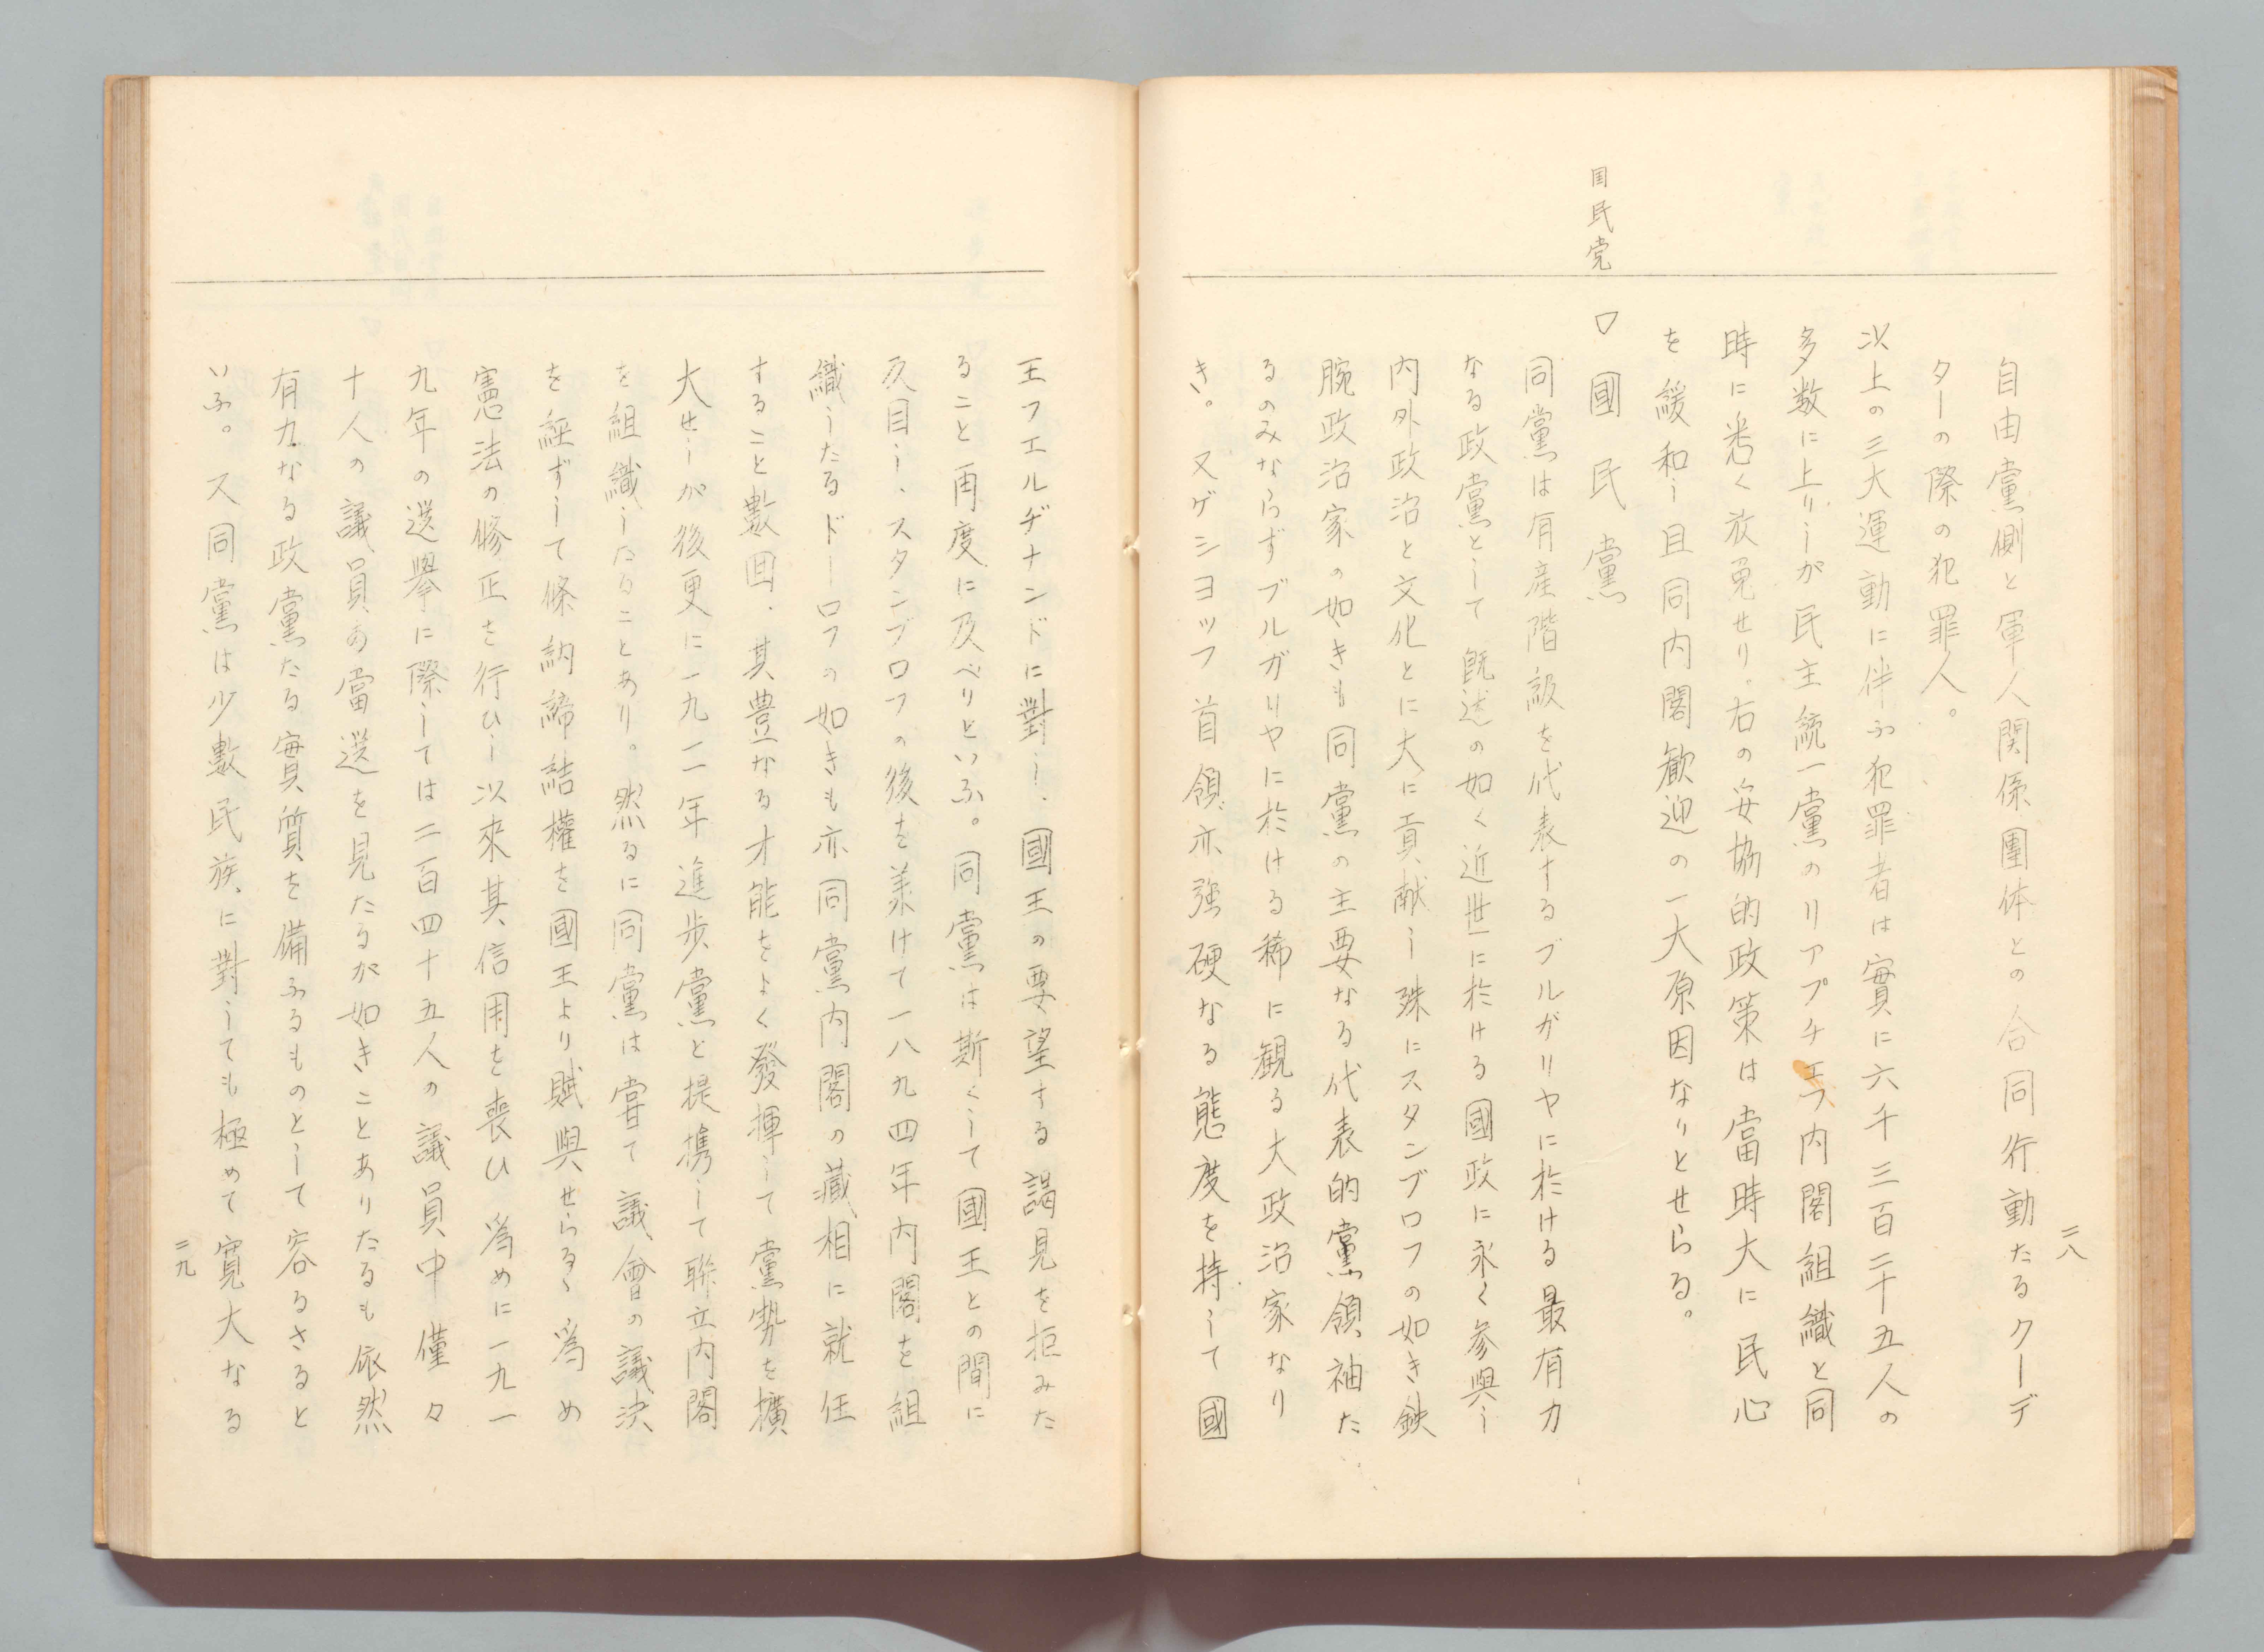 二八
自由黨側と軍人関係團体との合同行動たるクーデ
ターの際の犯罪人。
以上の三大運動に伴ふ犯罪者は實に六千三百二十五人の
多数に上りしが民主統一黨のリアプチエフ内閣組織と同
時に悉く放免せり。右の妥協的政策は當時大に民心
を緩和し且同内閣歓迎の一大原因なりとせらる。
国民党
口 國民黨
同黨は有産階級を代表するブルガリヤに於ける最有力
なる政黨として既述の如く近世に於ける國政に永く参與し
内外政治と文化とに大に貢献し殊にスタンブロフの如き鉄
腕政治家の如きも同黨の主要なる代表的黨領袖た
るのみならずブルガリヤに於ける稀に観る大政治家なり
き。又ゲシヨッフ首領亦強硬なる態度を持して國
王フエルヂナンドに對し、國王の要望する謁見を拒みた
ること再度に及べりといふ。同黨は斯くして國王との間に
反目し、スタンブロフの後を承けて一八九四年内閣を組
織したるドーロフの如きも亦同黨内閣の藏相に就任
すること數回、其豊なる才能をよく發揮して黨勢を擴
大せしが後更に一九一一年進歩黨と提携して聯立内閣
を組織したることあり。然るに同黨は嘗て議會の議決
を經ずして條約締結權を國王より賦與せらるゝ爲め
憲法の修正を行ひし以來其信用を喪ひ爲めに一九一
九年の選擧に際しては二百四十五人の議員中僅々
十人の議員の當選を見たるが如きことありたるも依然
有力なる政黨たる實質を備ふるものとして容るさると
いふ。又同黨は少數民族に對しても極めて寛大なる
二九